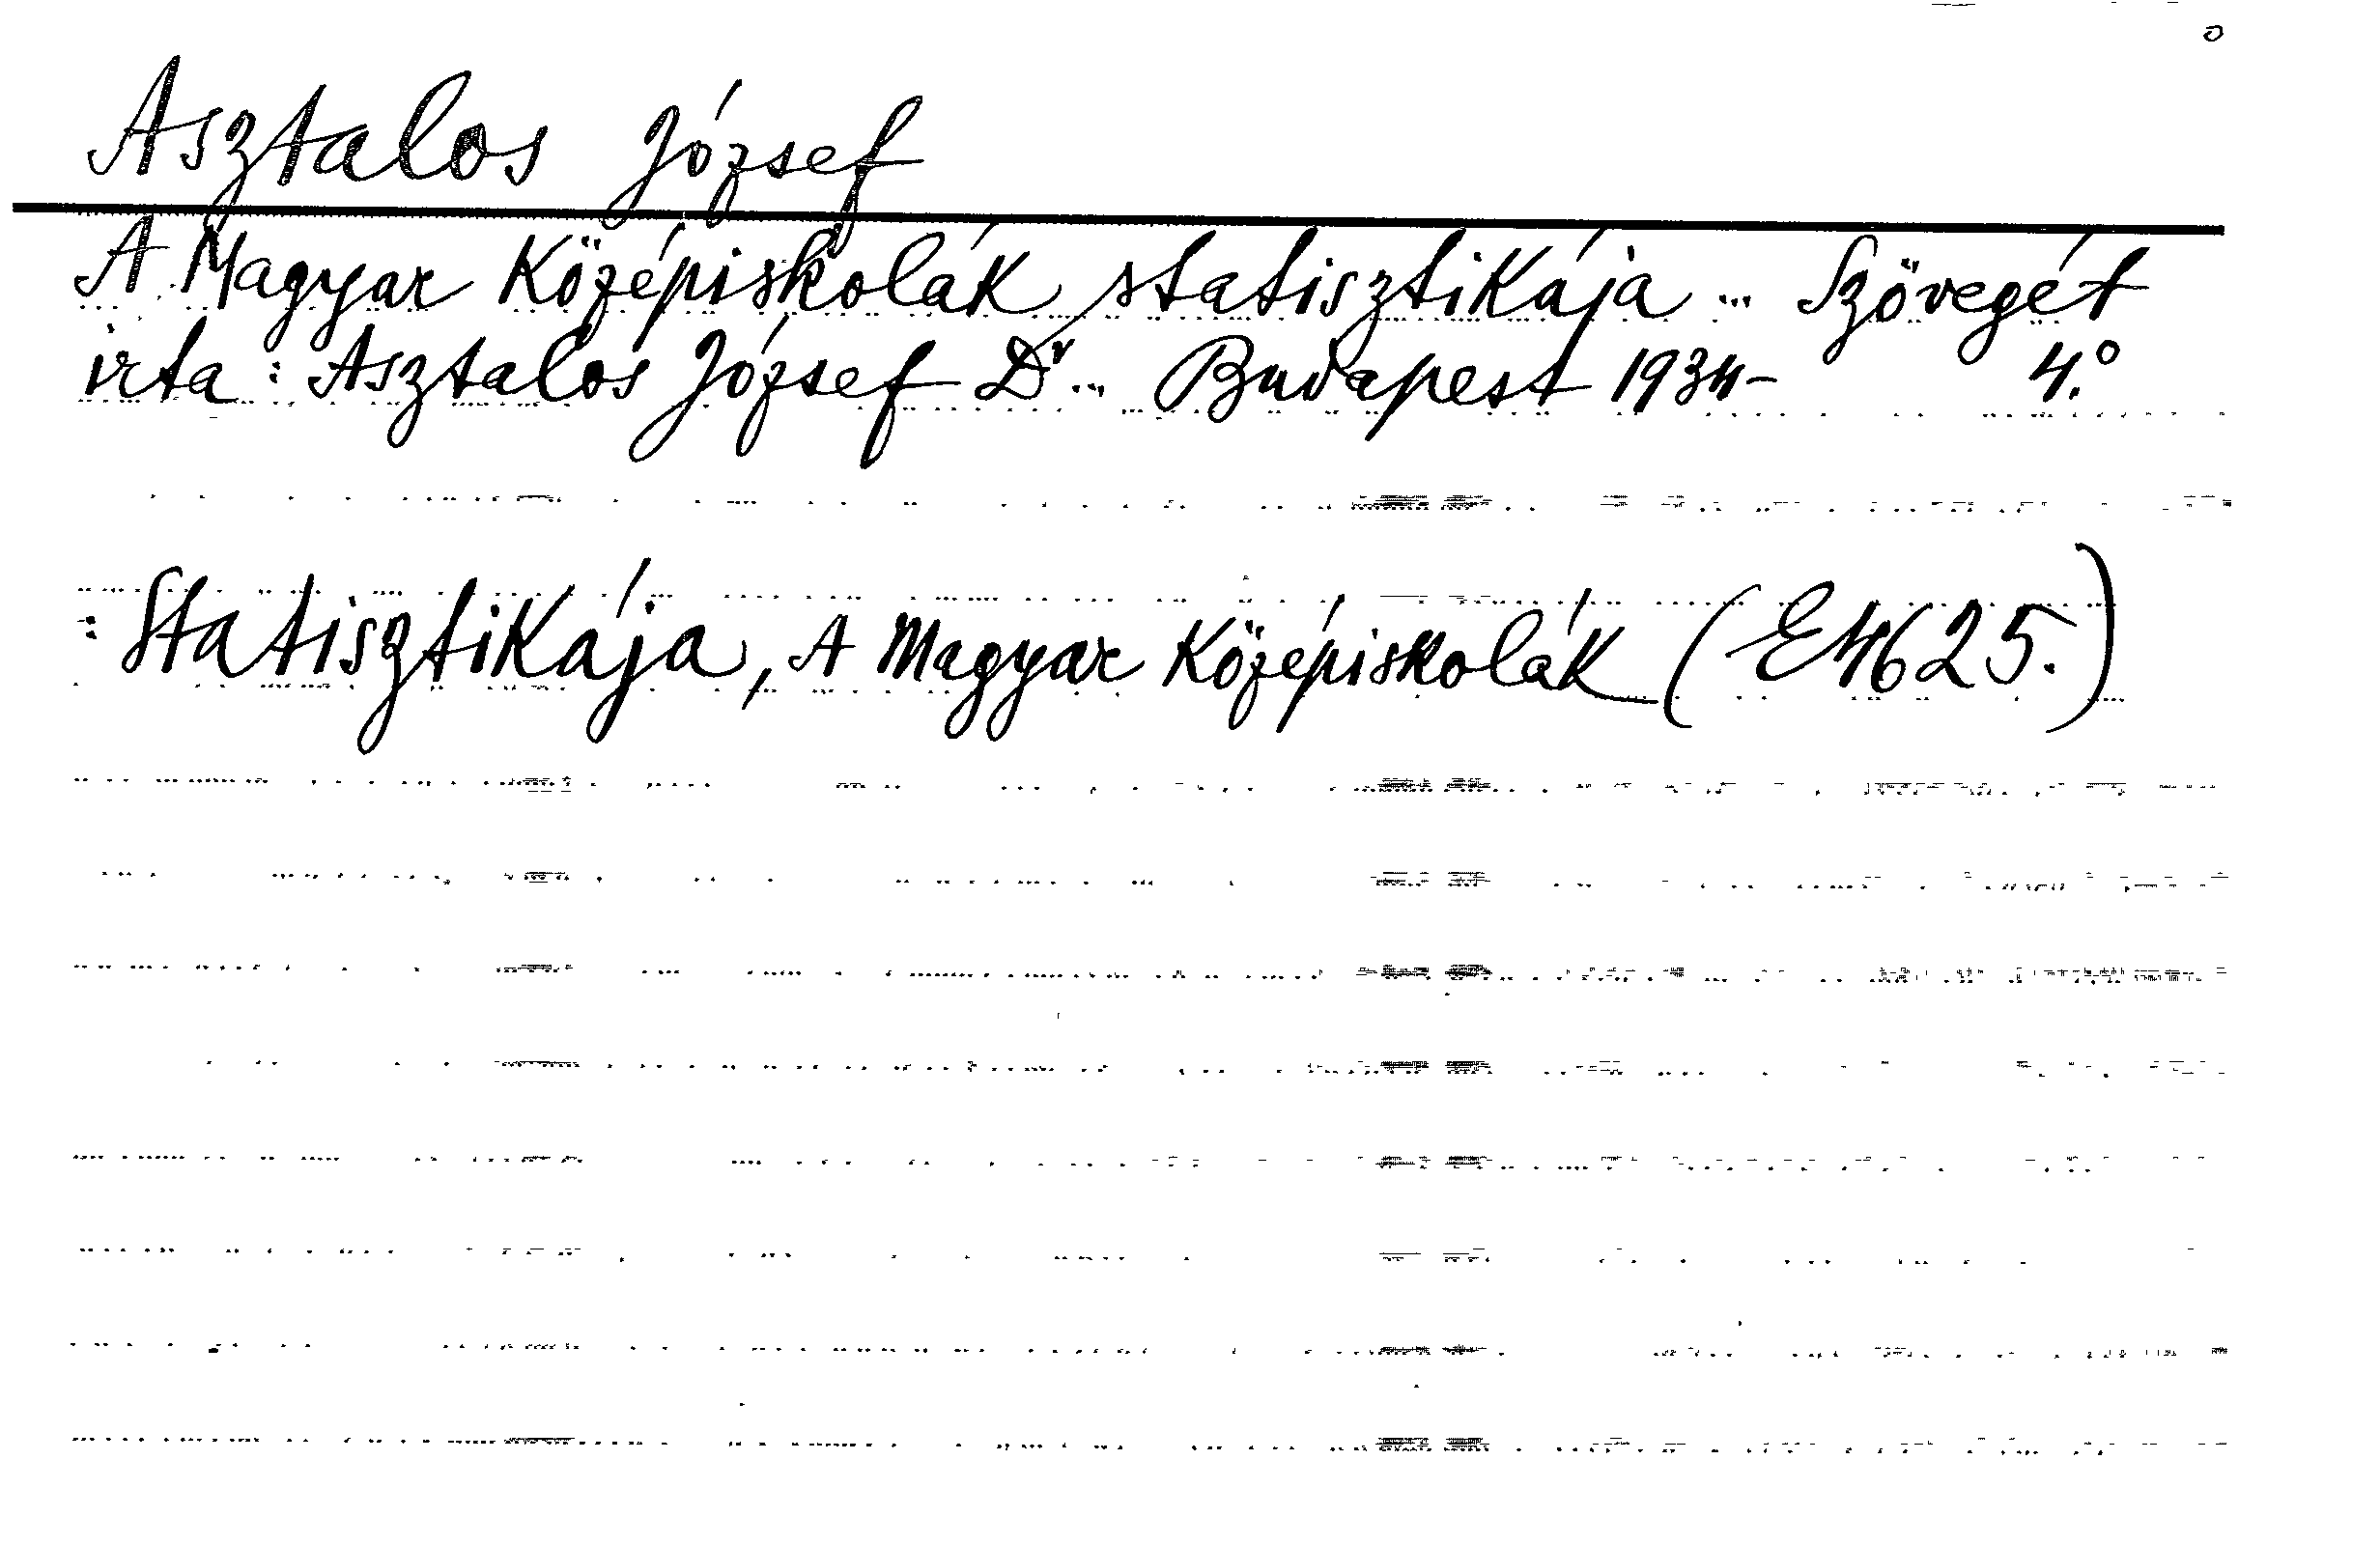 Asztalos József
A Magyar Középiskolák statisztikája ... Szövegét
irta: Asztalos József Dr ... Budapest 1934- 4.°
: Statisztikája, A Magyar Középiskolák (E4625.)